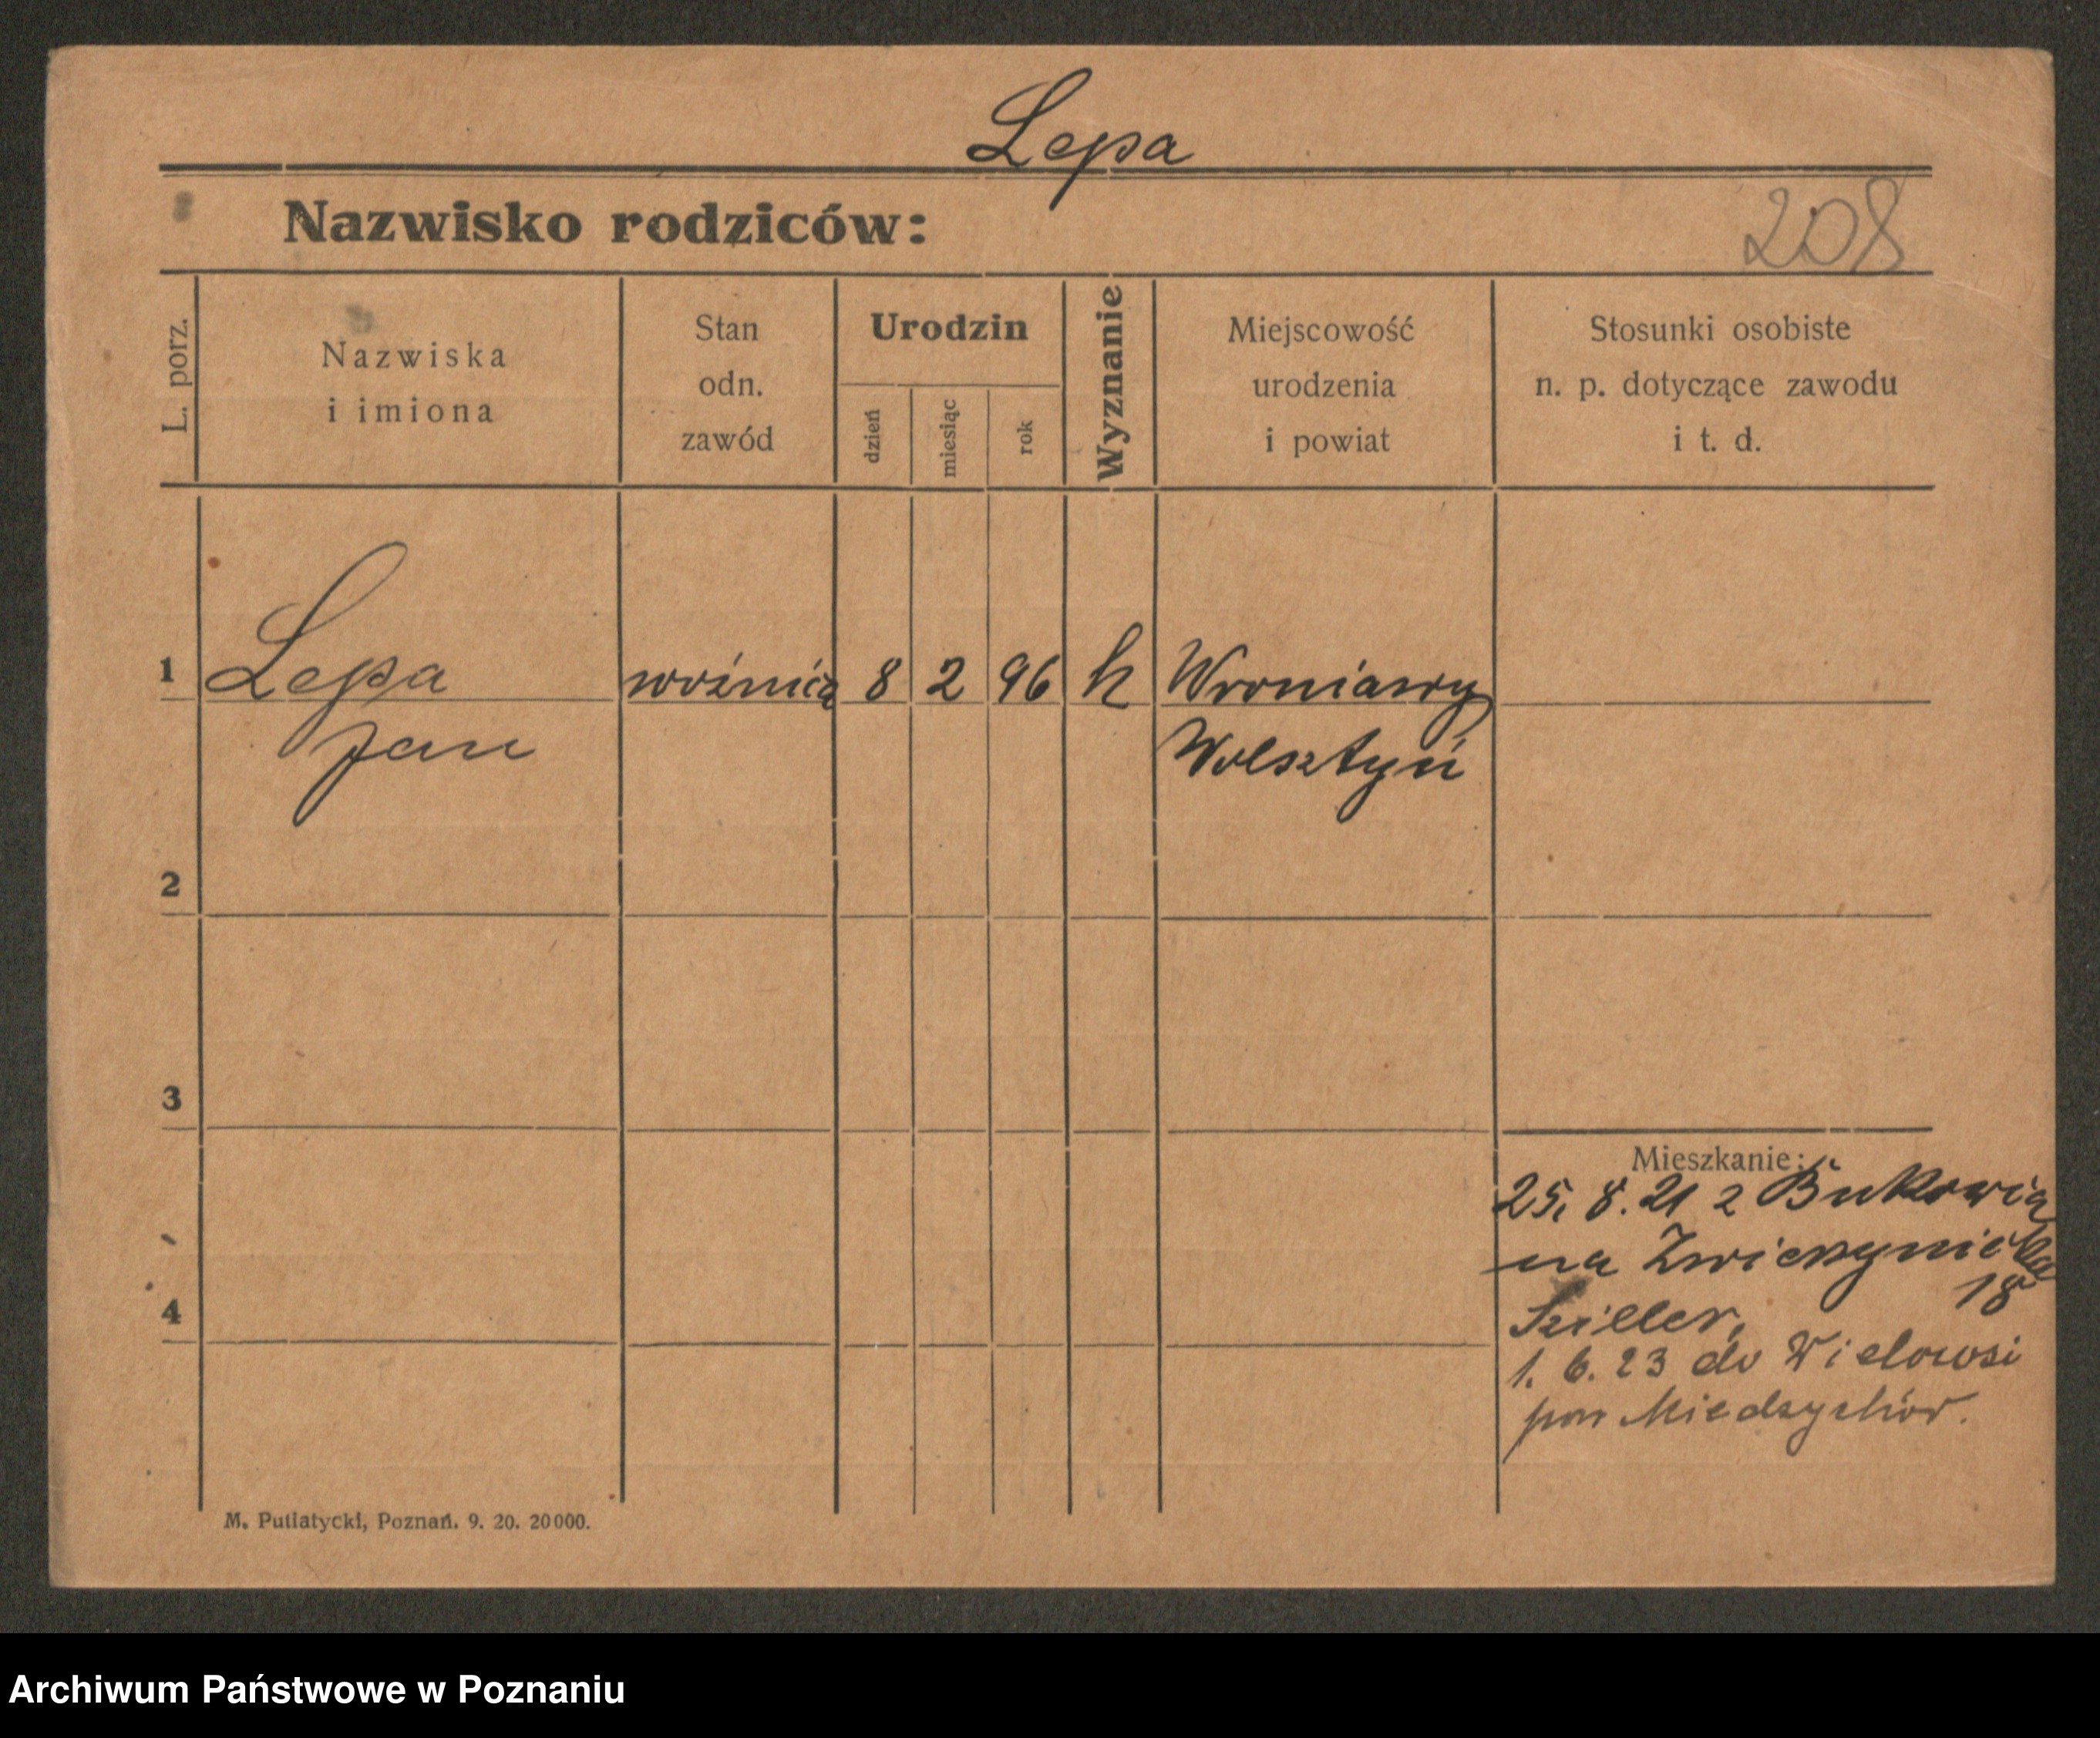 Lepa
Nazwisko rodziców:
208
L. porz.
Nazwiska
i imiona
Stan
odn.
zawód
Urodzin
dzień
miesiąc
rok
Wyznanie
Miejscowość
urodzenia
i powiat
Stosunki osobiste
n. p. dotyczące zawodu
i t. d.
1 Lepa woźnica 8 2 96 k Wroniawy
Jan Wolsztyń
2
3
Mieszkanie:
25. 8. 21 z Bukowca
na Zwierzyniecka
18
4 Sziller,
1. 6. 23 do Wielowsi
pow Miedzychów.
M. Putiatycki, Poznań. 9. 20. 20000.
Archiwum Państwowe w Poznaniu